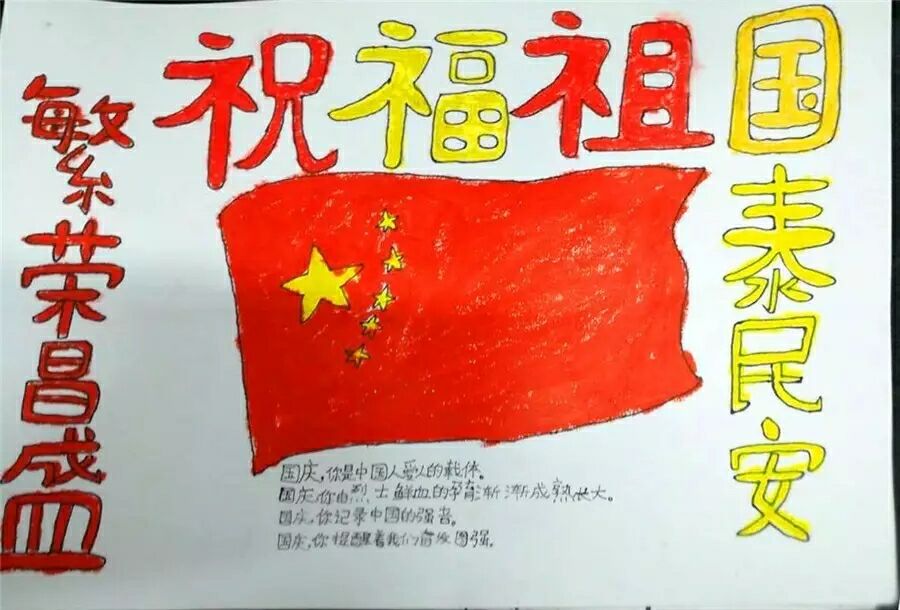 祝福祖国
泰民安
繁荣昌盛
国庆,你是中国人爱人的载体。
国庆,你由烈士鲜血的孕育渐渐成熟长大。
国庆,你记录中国的强音。
国庆,你提醒着我们奋发图强。